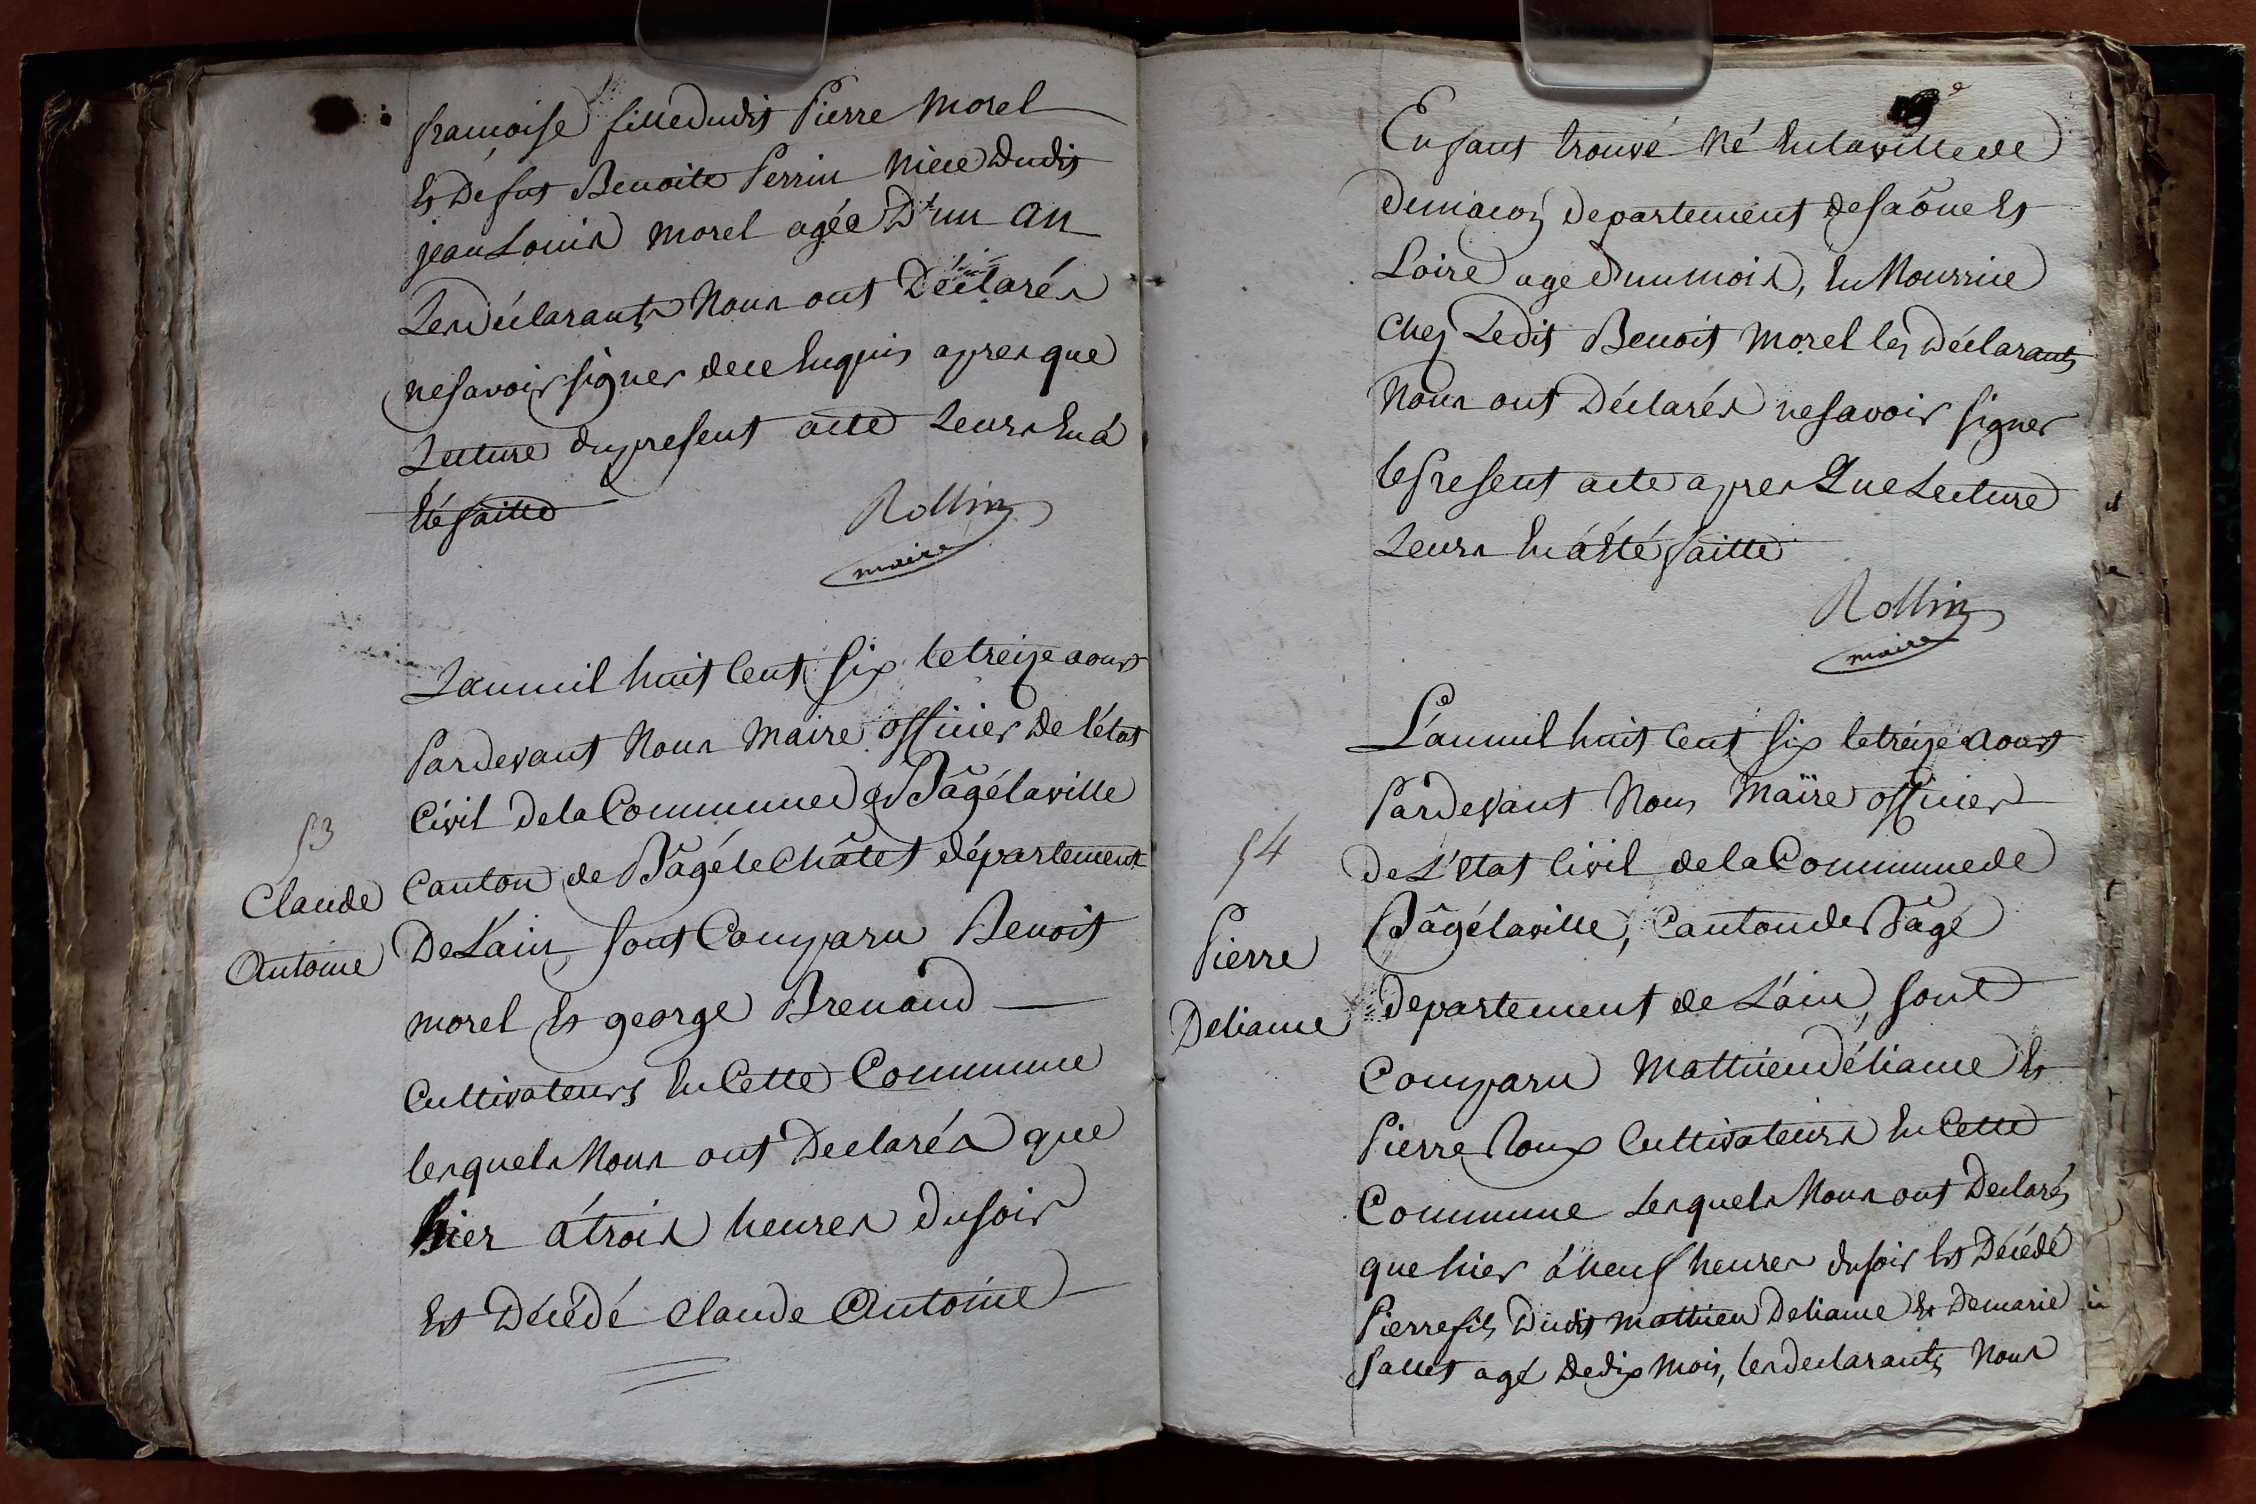 françoise filledudit Pierre Morel
et Défut Benoite Perrin niece Dudit
jean Louis morel agée D'un an
Les déclarants Nous ont Déclarés
ne savoir signer de ce Enquis apres que
Lecture du present acte Leurs En à
Eté faitte
Rollin
maire
L'an mil huit Cent six le treize aoust
Pardevant Nous Maire officier De l'état
Civil De la Commune de Bâgélaville
53
Canton de Bâgé le Châtel département
Claude
Antoine
De L'ain, sont Comparu Benoit
morel Et george Brenaud
Cultivateurs En Cette Commune
lesquels Nous ont Declarés que
hier à trois heures du soir
Est Décédé Claude Antoine
Enfant trouvé Né En la ville de
De macon Departement de Saône Et
Loire age d'un mois, En Nourrice
Chez Ledit Benoit Morel les Déclarants
Nous ont Déclarés ne savoir signer
le present acte apres que Lecture
Leurs En à Eté faitte
Rollin
maire
L'an mil huit Cent six le treize aoust
Pardevant Nous Maire officier
54
De L'Etat Civil de la Commune de
Bâgélaville, Canton de Bâgé
Pierre
Deliame
Departement de L'ain, sont
Comparu Mathieu déliame Et
Pierre Roux Cultivateurs En Cette
Commune Lesquels Nous ont Declarés
que hier à neuf heures du soir Est Décédé
Pierre fils Dudit Mathieu Deliame Et De marie
Pallet agé De dix Mois, les declarants Nous